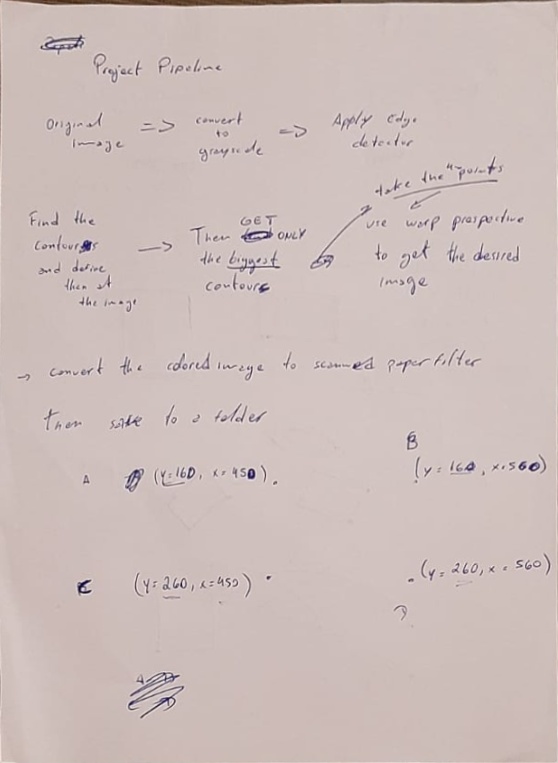 Project Pipeline
Original
image
=> convert
to
grayscale
=> Apply Edge
detector
take the 4 points
Find the
contours
and
then at
the image
→ Then GET ONLY
the biggest
contours
use warp prespective
to get the desired
image
→ convert the colored image to scanned paper filter
then save to a folder
A (y=160, x=450).
B
(y=160, x=560)
C (y=260, x=450) .
. (y=260, x=560)